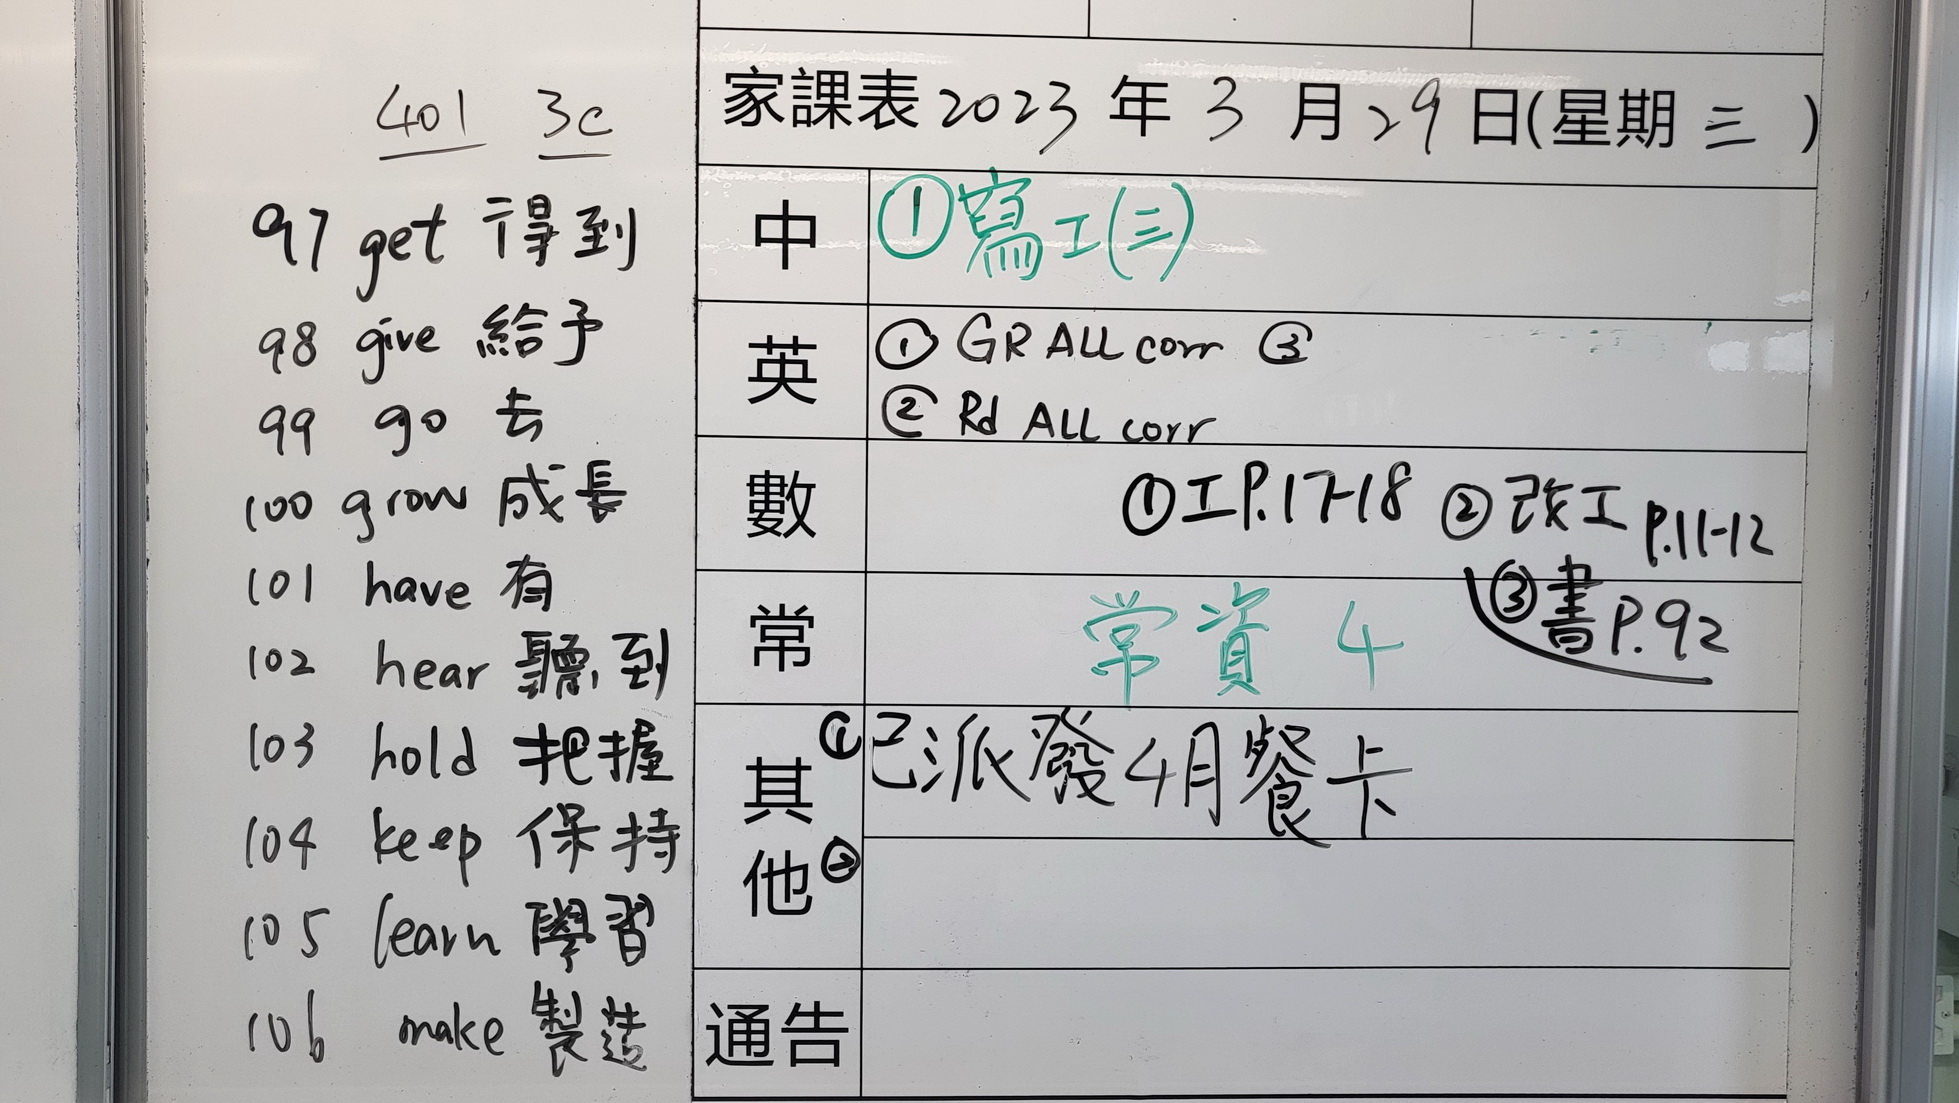 401 3c
97 get 得到
98 give 給予
99 go 去
100 grow 成長
101 have 有
102 hear 聽到
103 hold 把握
104 keep 保持
105 learn 學習
106 make 製造
家課表 2023 年 3 月 29 日(星期 三 )
中 ①寫工(三)
英 ① GR ALL corr ③
② Rd ALL corr
數 ①工P.17-18 ②改工 P.11-12
③書P.92
常 常資 4
其他 ① 已派發4月餐卡
②
通告